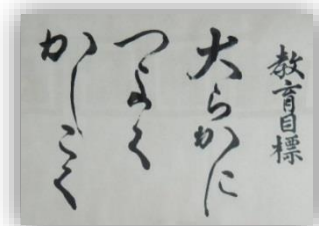 教育目標
大らかに
つよく
かしこく